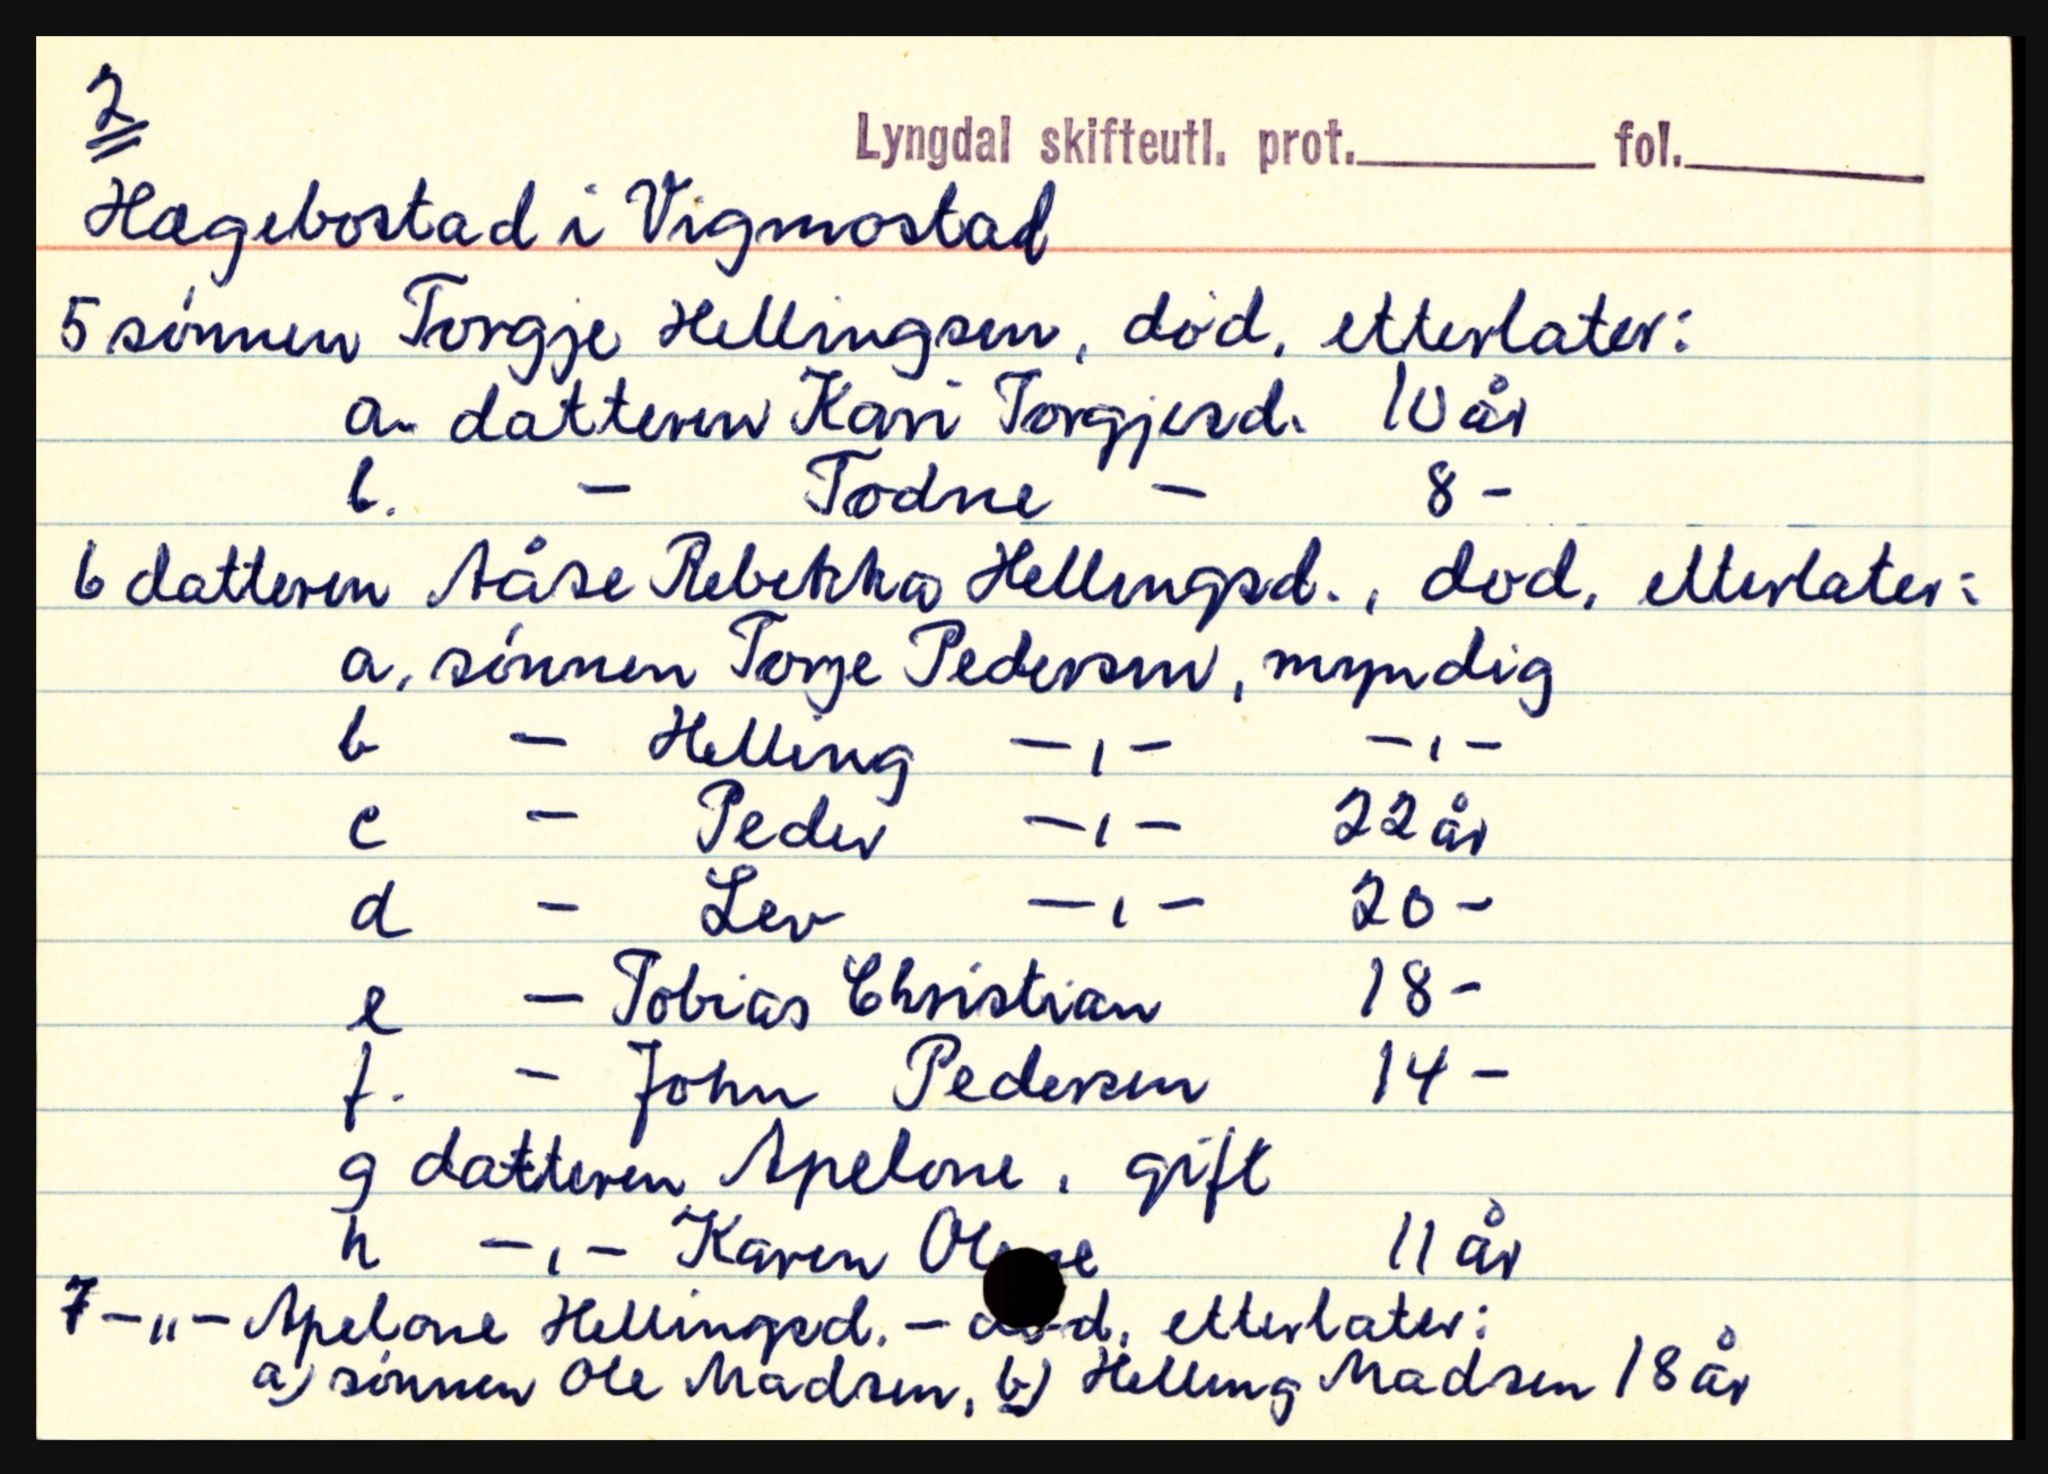 2
Lyngdal skifteutl. prot.__________ fol.__________
Hægebostad i Vigmostad
5 sønnen Torgje Hellingsen, død, etterlater:
a. datteren Kari Torgjesd. 10 år
b. - Todne - 8 -
6 datteren Aåse Rebekka Hellingsd., død, etterlater:
a, sønnen Torje Pedersen, myndig
b - Helling -,- -,-
c - Peder -,- 22 år
d - Lev -,- 20 -
e - Tobias Christian 18 -
f. - John Pedersen 14 -
g datteren Apelone, gift
h -,- Karen 11 år
7 -„- Apelone Hellingsd. - død, etterlater:
a) sønnen Ole Madsen, b) Helling Madsen 18 år